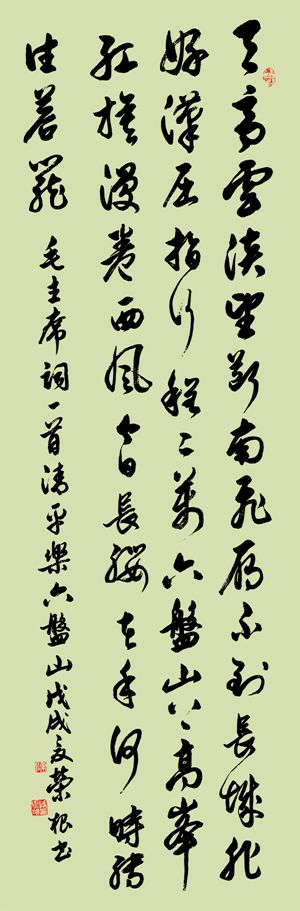 天高雲淡望斷南飛雁不到長城非
好漢屈指行程二萬六盤山上高峯
紅旗漫卷西風今日長纓在手何時縛
住蒼龍 毛主席詞一首清平樂六盤山戊戌夏榮根書